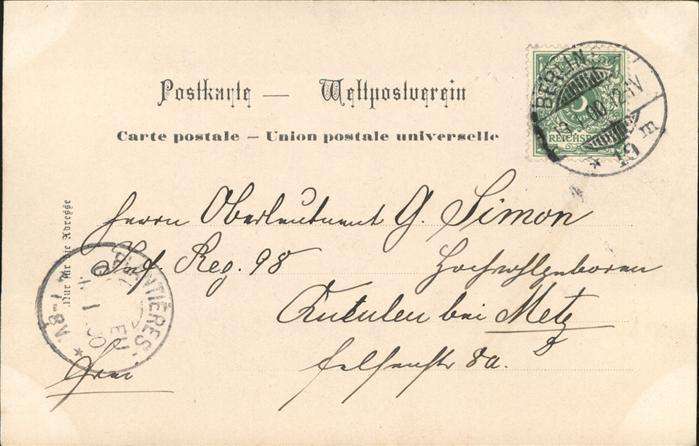 Postkarte — Weltpostverein
Carte postale – Union postale universelle
Nur für die Adresse
BERLIN
REICHSPOST
5
Herrn Oberleutnant G. Simon
Inf Reg. 98 Hochwohlgeboren
Queuleu bei Metz
Felsenstr 8a.
Frei
PLANTIÈRES-QUEULEU